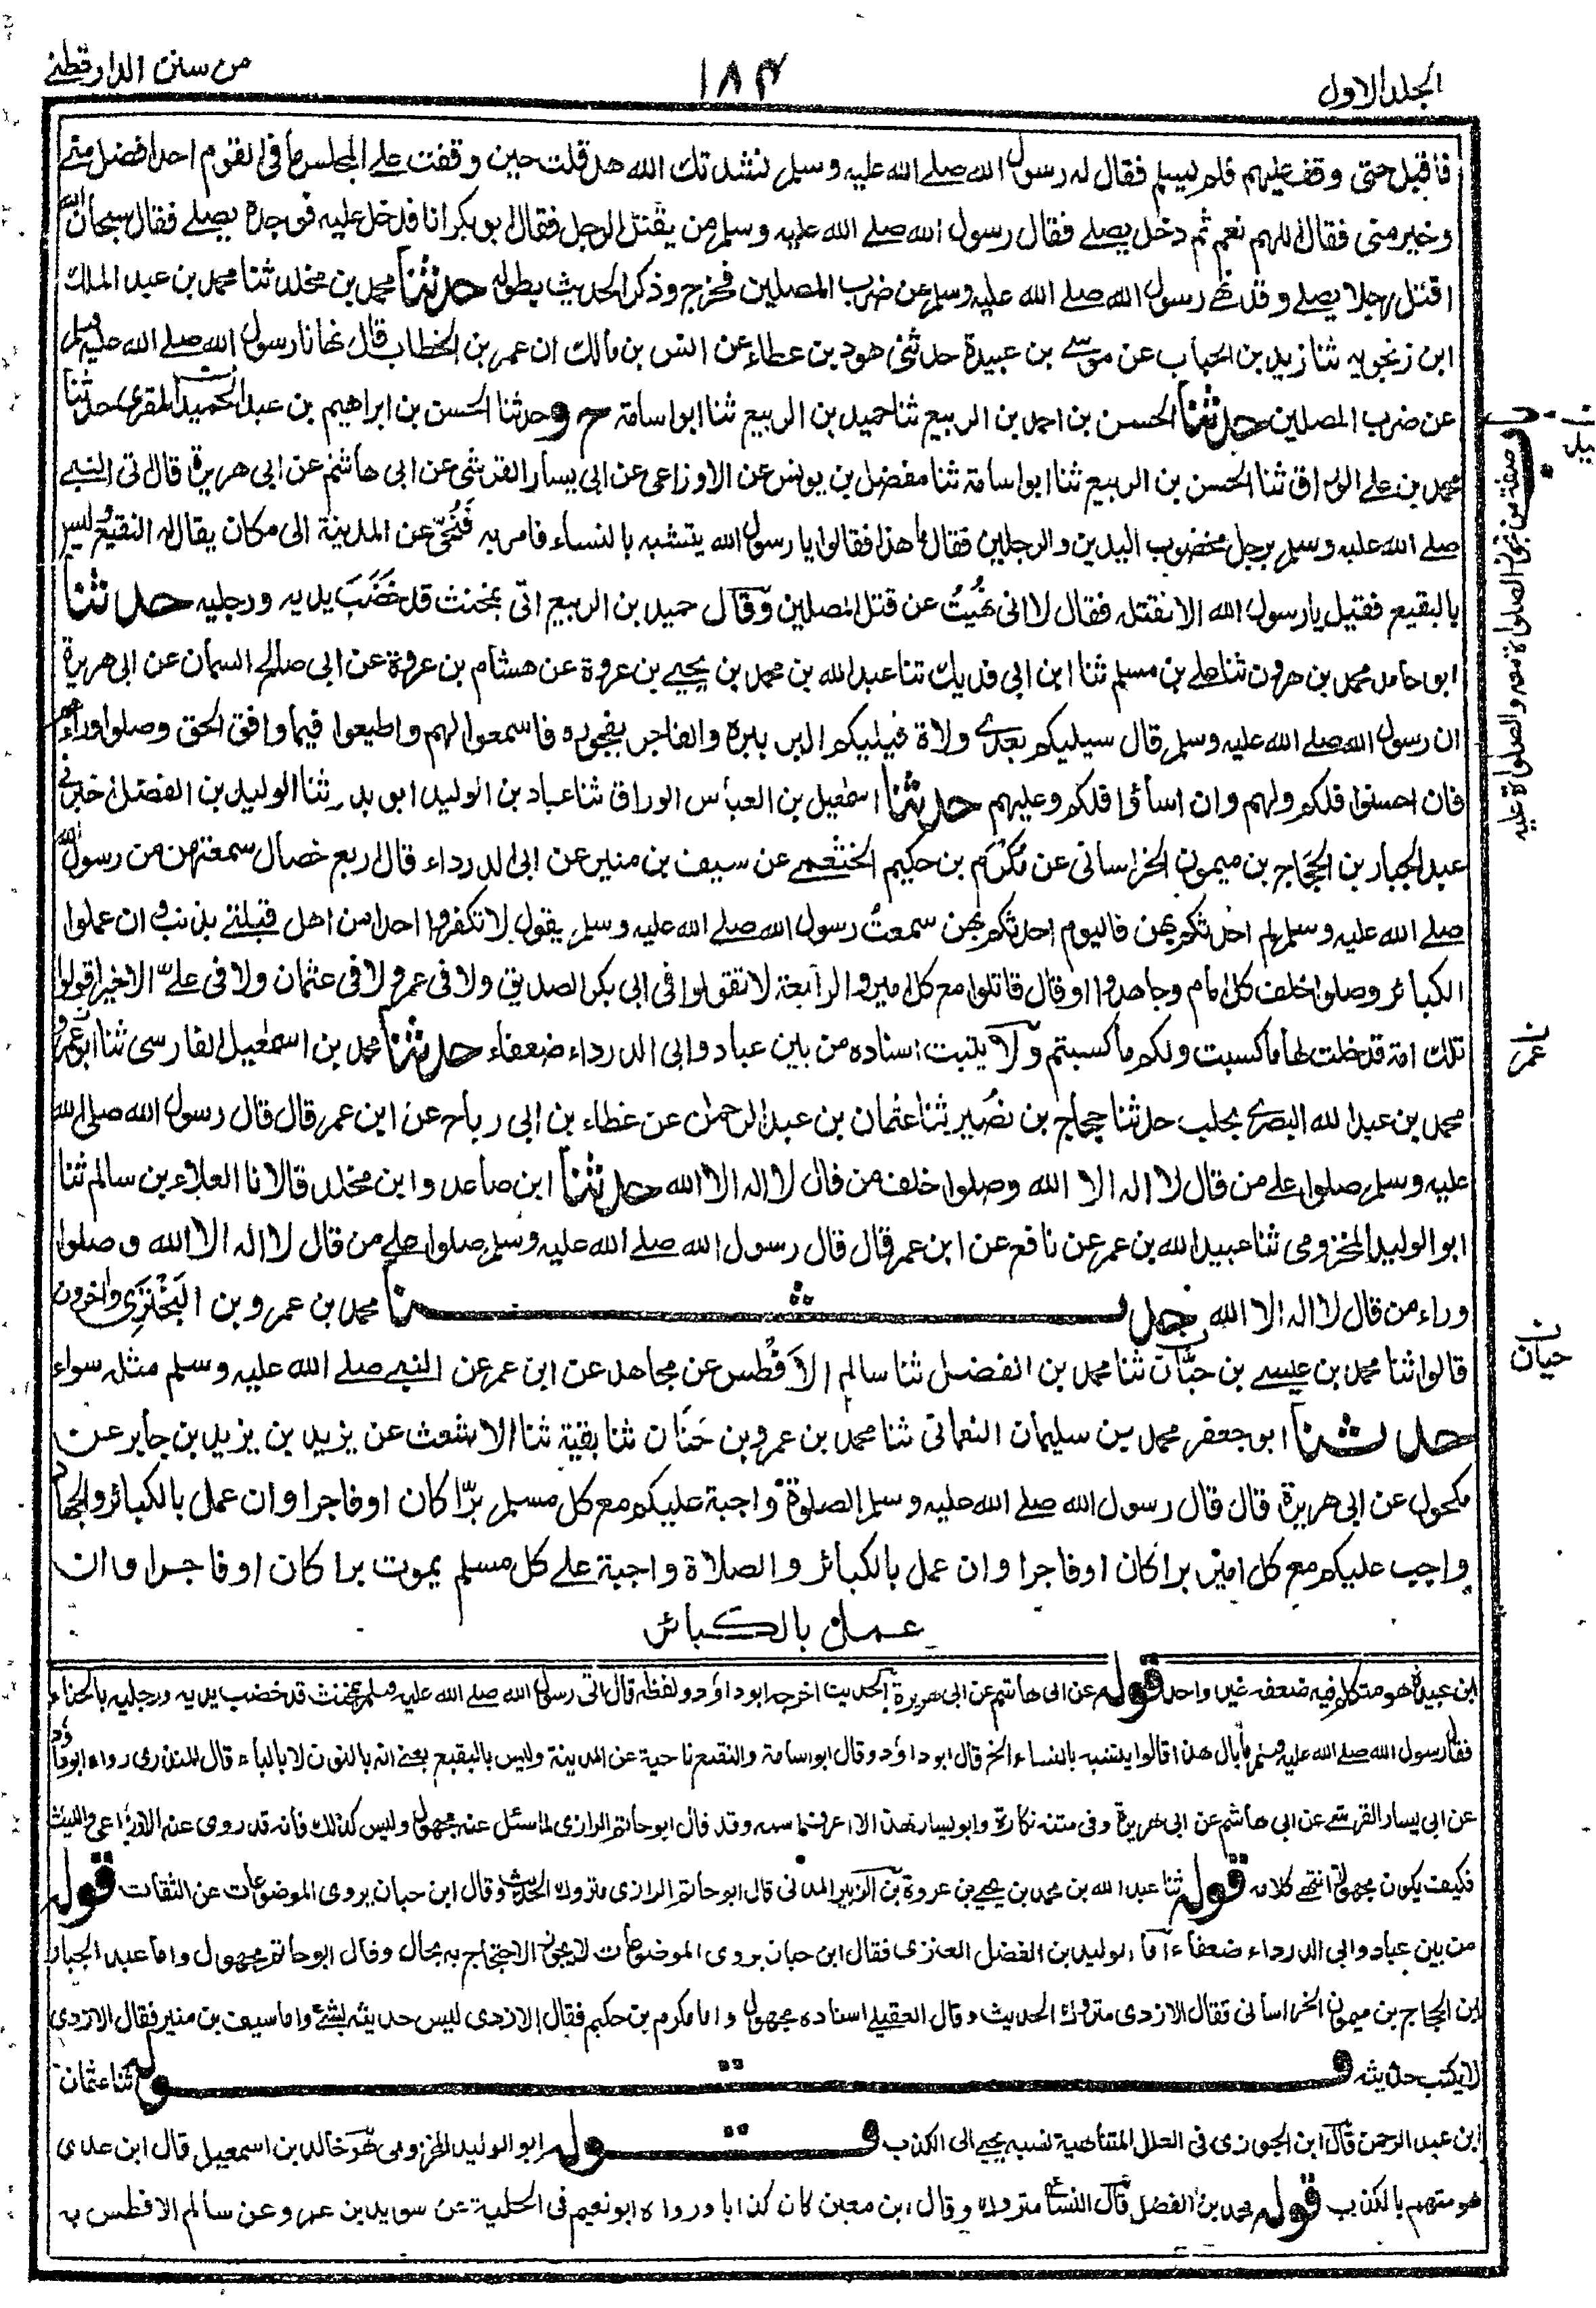 الجلد الاول
١٨٤
من سنن الدارقطنے
فاقبل حتى وقف عليهم فلم يسلم فقال له رسول الله صلے الله عليه وسلم نشدتك الله هل قلت حين وقفت علے المجلس ما فى القوم احد افضل منے
وخير منى فقال اللهم نعم ثم دخل يصلے فقال رسول الله صلے الله عليه وسلم من يقتل الرجل فقال ابو بكر انا فدخل عليه فوجده يصلے فقال سبحان الله
اقتل رجلا يصلے وقد نهے رسول الله صلے الله عليه وسلم عن ضرب المصلين فخرج وذكر الحديث بطوله حدثنا محمد بن مخلد ثنا محمد بن عبد الملك
ابن زنجويه ثنا زيد بن الحباب عن موسے بن عبيدة حدثنى هود بن عطاء عن انس بن مالك ان عمر بن الخطاب قال نهانا رسول الله صلے الله عليه وسلم
عن ضرب المصلين حدثنا الحسن بن احمد بن الربيع ثنا حميد بن الربيع ثنا ابو اسامة ح وحدثنا الحسن بن ابراهيم بن عبد الحميد المقرى حدثنا
محمد بن علے الوراق ثنا الحسن بن الربيع ثنا ابو اسامة ثنا مفضل بن يونس عن الاوزاعى عن ابى يسار القرشى عن ابى هاشم عن ابى هريرة قال اتى النبے
صلے الله عليه وسلم برجل مخضوب اليدين والرجلين فقال ما هذا فقالوا يا رسول الله يتشبه بالنساء فامر به فَنُحِّىَ عن المدينة الى مكان يقال له النقيع وليس
بالبقيع فقيل يا رسول الله الا نقتله فقال لا انى نُهيتُ عن قتل المصلين وقال حميد بن الربيع اتى بمخنث قد خَضَبَ يديه ورجليه حدثنا
ابو حامد محمد بن هرون ثنا علے بن مسلم ثنا ابن ابى فديك ثنا عبد الله بن محمد بن يحيے بن عروة عن هشام بن عروة عن ابى صالح السمان عن ابى هريرة
ان رسول الله صلے الله عليه وسلم قال سيليكم بعدے ولاة فيليكم البر ببره والفاجر بفجوره فاسمعوا لهم واطيعوا فيما وافق الحق وصلوا وراءهم
فان احسنوا فلكم ولهم وان اساؤا فلكم وعليهم حدثنا اسمٰعيل بن العباس الوراق ثنا عباد بن الوليد ابو بدر ثنا الوليد بن الفضل اخبرنے
عبد الجبار بن الحجاج بن ميمون الخراسانى عن مُكْرَم بن حكيم الخثعمے عن سيف بن منير عن ابى الدرداء قال اربع خصال سمعتهن من رسول الله
صلے الله عليه وسلم لم احدثكم بهن فاليوم احدثكم بهن سمعتُ رسول الله صلے الله عليه وسلم يقول لا تكفروا احدا من اهل قبلتے بذنب وان عملوا
الكبائر وصلوا خلف كل امام وجاهدوا او قال قاتلوا مع كل امير والرابعة لا تقولوا فى ابى بكر الصديق ولا فى عمر ولا فى عثمان ولا فى علے الا خيرا قولوا
تلك امة قد خلت لها ما كسبت ولكم ما كسبتم ولا يثبت اسناده من بين عباد وابى الدرداء ضعفاء حدثنا محمد بن اسمٰعيل الفارسى ثنا ابو عمرو
محمد بن عبد الله البصرے بحلب حدثنا حجاج بن نُصَير ثنا عثمان بن عبد الرحمٰن عن عطاء بن ابى رباح عن ابن عمر قال قال رسول الله صلى الله
عليه وسلم صلوا علے من قال لا اله الا الله وصلوا خلف من قال لا اله الا الله حدثنا ابن صاعد وابن مخلد قالا نا العلاء بن سالم ثنا
ابو الوليد المخزومى ثنا عبيد الله بن عمر عن نافع عن ابن عمر قال قال رسول الله صلے الله عليه وسلم صلوا علے من قال لا اله الا الله وصلوا
وراء من قال لا اله الا الله حدثنا محمد بن عمرو بن البَخْتَرِى واٰخرون
قالوا ثنا محمد بن عيسے بن حبَّان ثنا محمد بن الفضل ثنا سالم الاَفْطس عن مجاهد عن ابن عمر عن النبے صلے الله عليه وسلم مثله سواء
حدثنا ابو جعفر محمد بن سليمان النعمانى ثنا محمد بن عمرو بن حَنَان ثنا بقية ثنا الاشعث عن يزيد بن يزيد بن جابر عن
مكحول عن ابى هريرة قال قال رسول الله صلے الله عليه وسلم الصلوة واجبة عليكم مع كل مسلم برّا كان او فاجرا وان عمل بالكبائر والجهاد
واجب عليكم مع كل امير برا كان او فاجرا وان عمل بالكبائر والصلاة واجبة علے كل مسلم يموت برا كان او فاجرا وان
عمل بالكبائر
صفة من تجوز الصلواة معه والصلواة عليه
ن عمر
ن حيان
ابن عبيدة هو متكلم فيه ضعفه غير واحد قوله عن ابى هاشم عن ابى هريرة الحديث اخرجه ابو داؤد ولفظه قال اتى رسول الله صلے الله عليه وسلم بمخنث قد خضب يديه ورجليه بالحناء
فقال رسول الله صلے الله عليه وسلم ما بال هذا قالوا يتشبه بالنساء الخ قال ابو داؤد وقال ابو اسامة والنقيع ناحية عن المدينة وليس بالبقيع يعنے انه بالنون لا بالباء قال المنذرى رواه ابو داؤد
عن ابى يسار القرشے عن ابى هاشم عن ابى هريرة وفى متنه نكارة وابو يسار هذا لا اعرف اسمه وقد قال ابو حاتم الرازى لما سئل عنه مجهول وليس كذلك فانه قد روى عنه الاوزاعى والليث
فكيف يكون مجهولا انتهے كلامه قوله ثنا عبد الله بن محمد بن يحيے بن عروة بن الزبير المدنى قال ابو حاتم الرازى متروك الحديث وقال ابن حبان يروى الموضوعات عن الثقات قوله
من بين عباد وابى الدرداء ضعفاء اما الوليد بن الفضل العنزى فقال ابن حبان يروى الموضوعات لا يجوز الاحتجاج به بحال وقال ابو حاتم مجهول واما عبد الجبار
ابن الحجاج بن ميمون الخراسانى فقال الازدى متروك الحديث وقال العقيلے اسناده مجهول واما مكرم بن حكيم فقال الازدى ليس حديثه بشئ واما سيف بن منير فقال الازدى
لا يكتب حديثه قوله ثنا عثمان
ابن عبد الرحمن قال ابن الجوزى فى العلل المتناهية نسبه يحيے الى الكذب قوله ابو الوليد المخزومى هو خالد بن اسمعيل قال ابن عدى
هو متهم بالكذب قوله محمد بن الفضل قال النسائى متروك وقال ابن معين كان كذابا ورواه ابو نعيم فى الحلية عن سويد بن عمرو عن سالم الافطس به